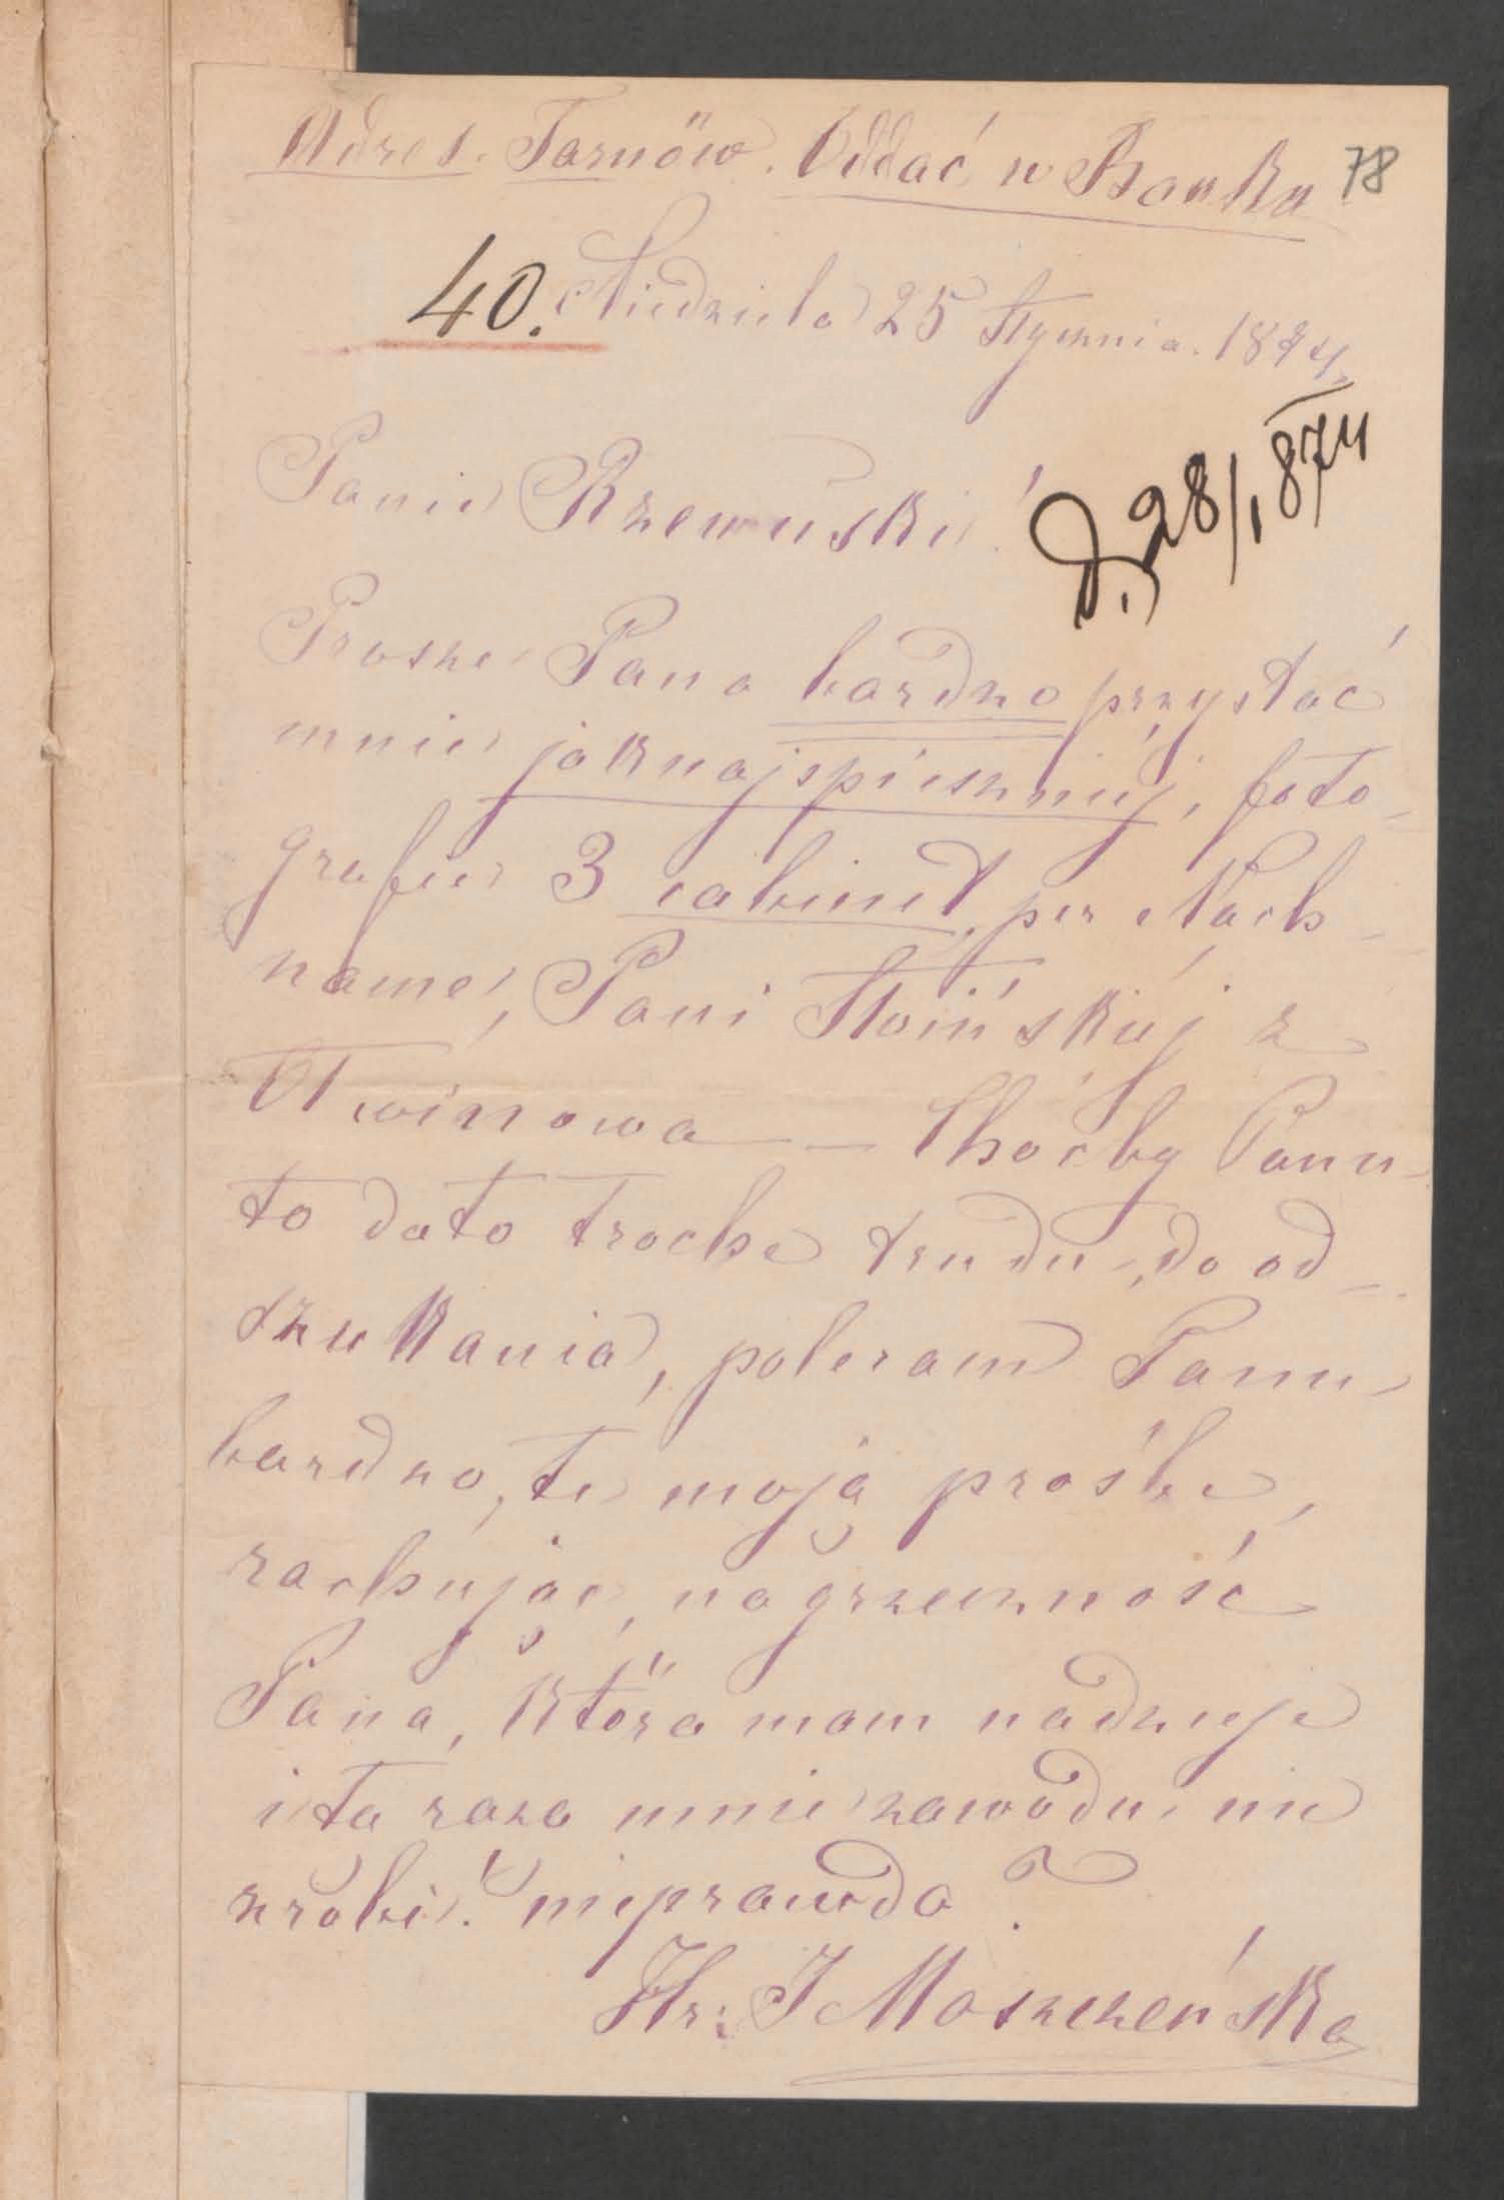 Adres. Tarnöw. Oddać w Banku 78
40. Niedziela 25 Stycznia. 1874.
D. 28/1 874
Panie Rzewuski!
Prosze Pana bardzo przysłać
mnie jaknajspieszniej, foto-
grafie 3 cabinet, per Nach-
name, Pani Stoińskiéj z
Otwinowa — Choćby Panu
to dało troche trudu, do od-
szukania, polecam Panu
bardzo, te moją prośbe,
rachując, na grzeczność
Pana, która mam nadzieje
i ta raza mnie zawodu nie
zrobi. nieprawda?
Hr: J Moszczeńska